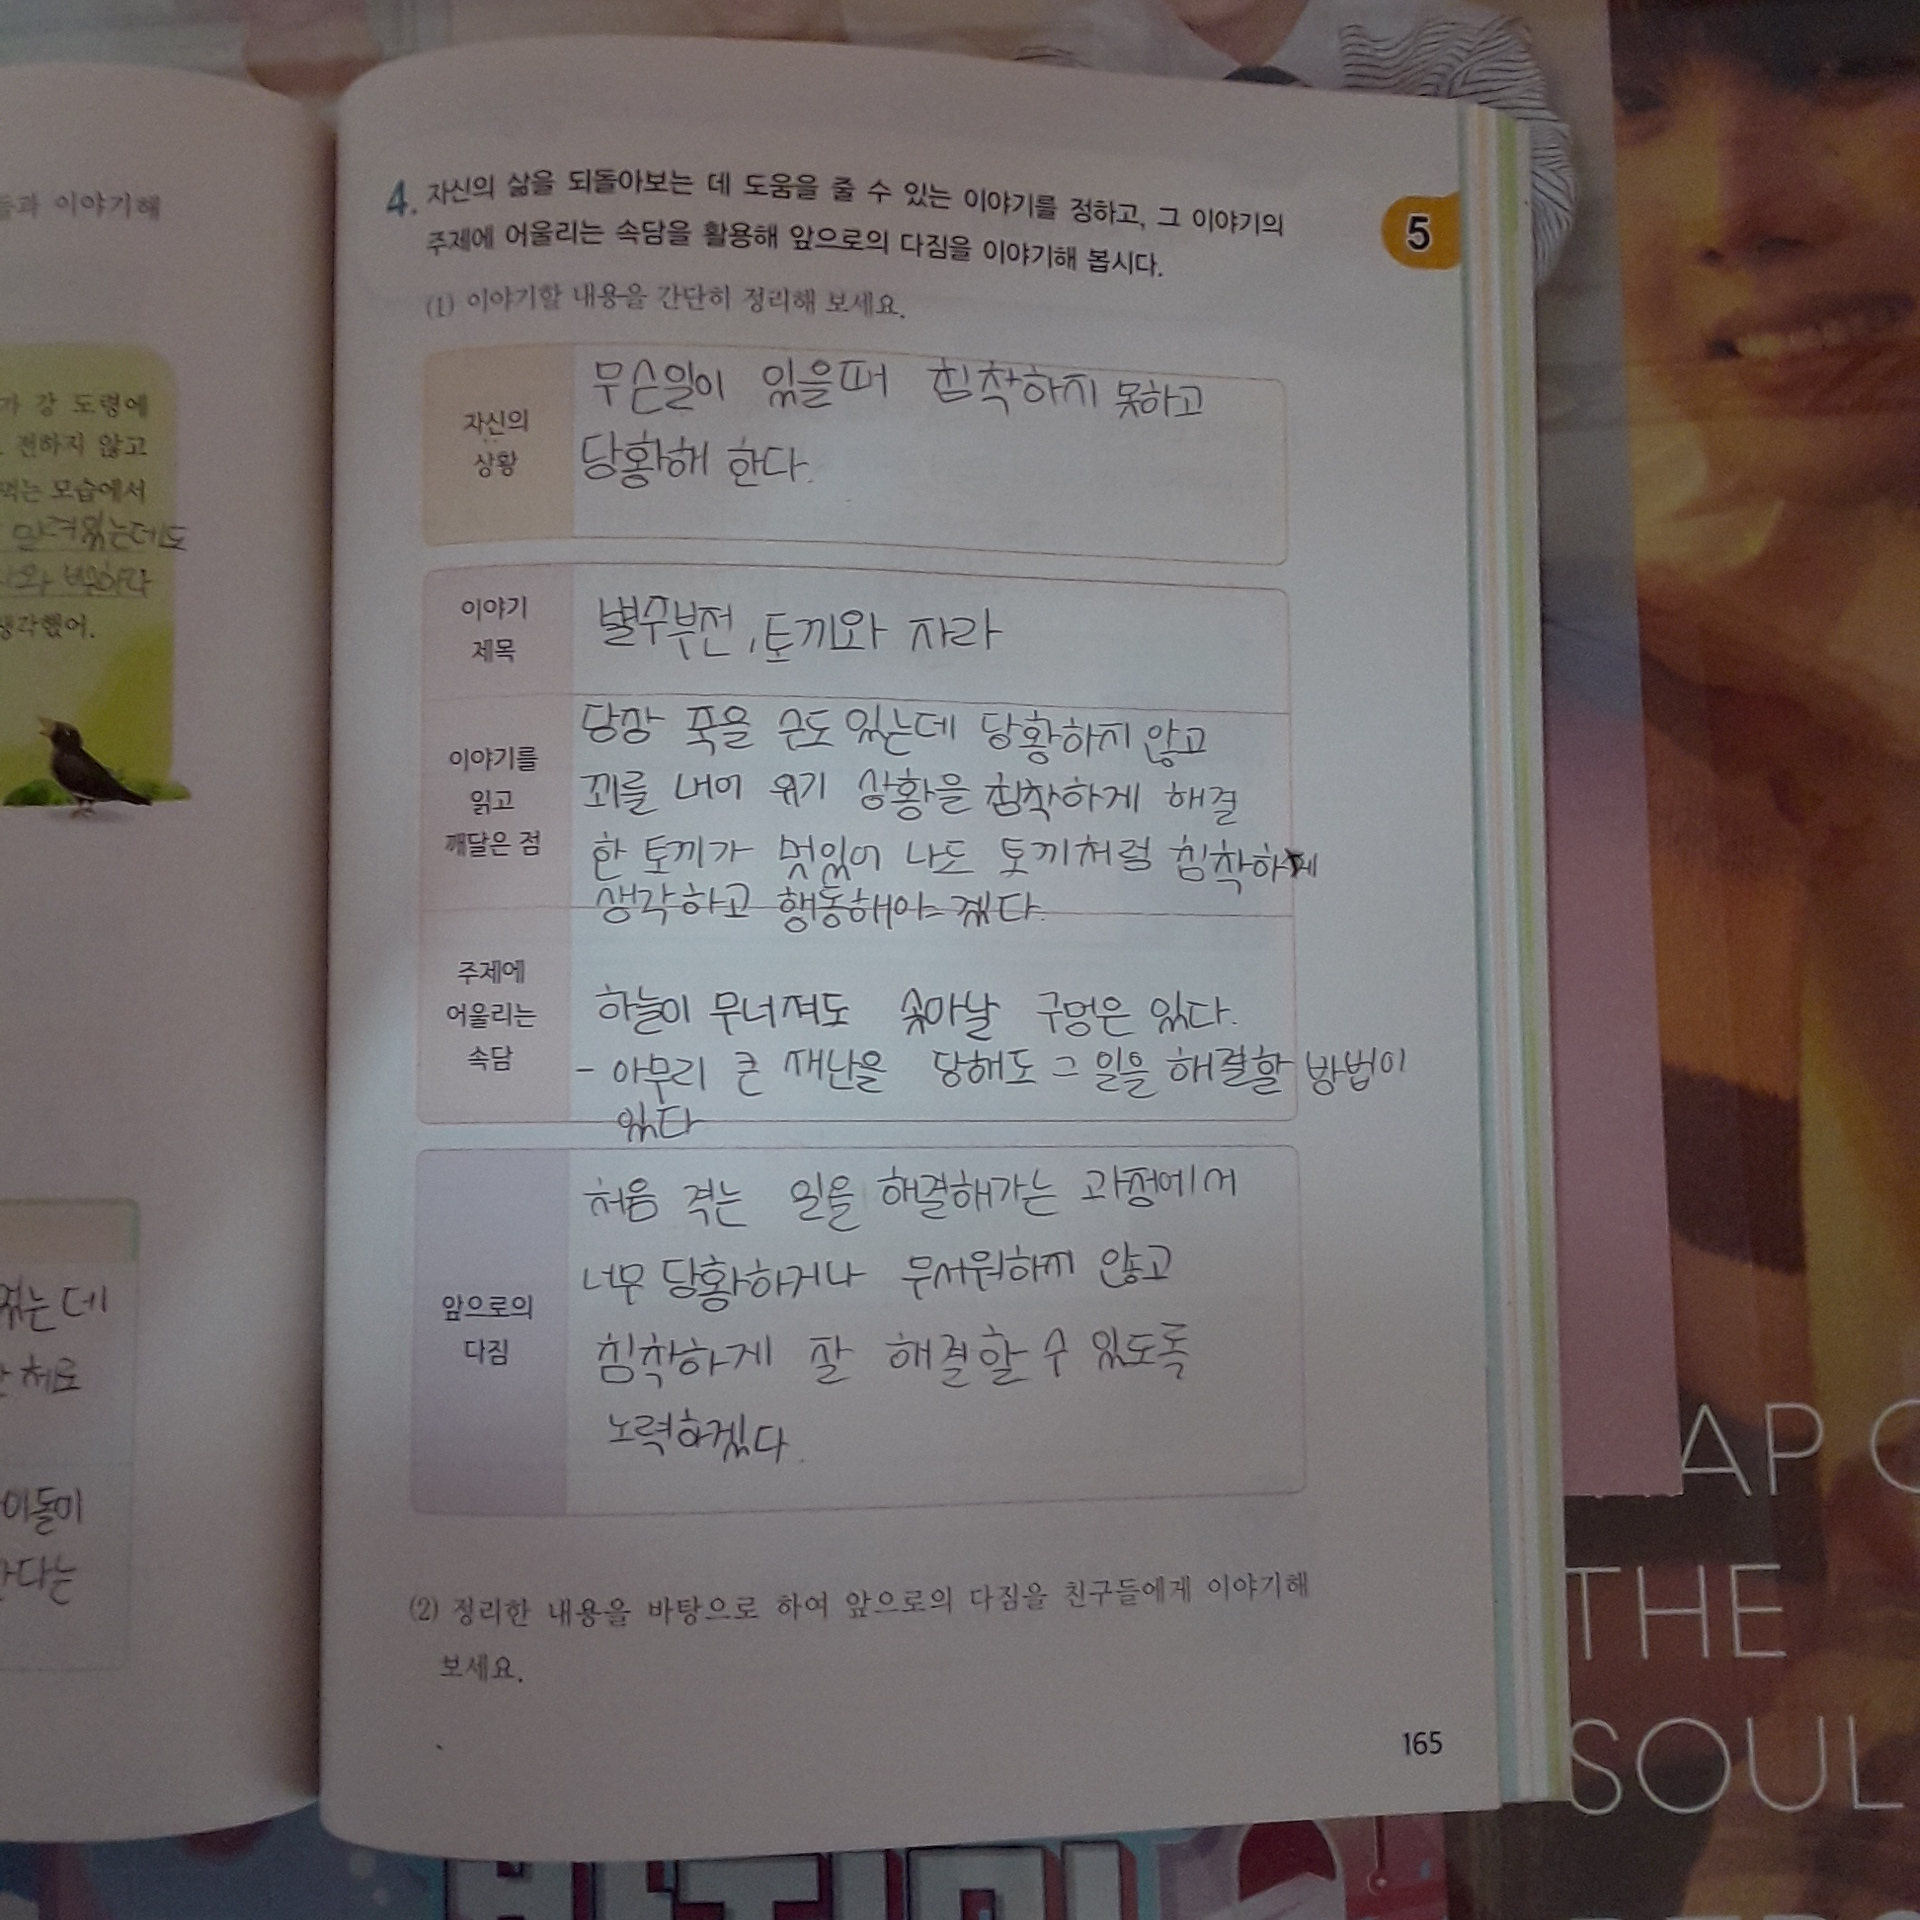 들과 이야기해
가 강 도령에
전하지 않고
먹는 모습에서
맡겨있는데도
생각했어.
는데
체로
이들이
다는
4. 자신의 삶을 되돌아보는 데 도움을 줄 수 있는 이야기를 정하고, 그 이야기의
주제에 어울리는 속담을 활용해 앞으로의 다짐을 이야기해 봅시다.
5
(1) 이야기할 내용을 간단히 정리해 보세요.
자신의
상황
무슨일이 있을때 침착하지 못하고
당황해 한다.
이야기
제목
별주부전, 토끼와 자라
이야기를
읽고
깨달은 점
당장 죽을 수도 있는데 당황하지 않고
꾀를 내어 위기 상황을 침착하게 해결
한 토끼가 멋있어 나도 토끼처럼 침착하게
생각하고 행동해야 겠다.
주제에
어울리는
속담
하늘이 무너져도 솟아날 구멍은 있다.
- 아무리 큰 재난을 당해도 그 일을 해결할 방법이
있다
앞으로의
다짐
처음 겪는 일을 해결해가는 과정에서
너무 당황하거나 무서워하지 않고
침착하게 잘 해결할 수 있도록
노력하겠다.
(2) 정리한 내용을 바탕으로 하여 앞으로의 다짐을 친구들에게 이야기해
보세요.
165
AP O
THE
SOUL